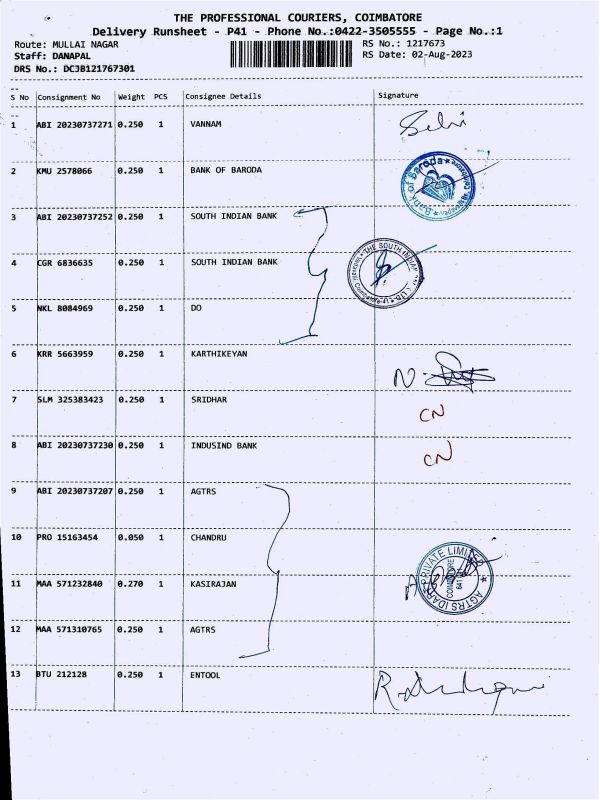 THE PROFESSIONAL COURIERS, COIMBATORE
Delivery Runsheet - P41 - Phone No.:0422-3505555 - Page No.:1
Route: MULLAI NAGAR RS No.: 1217673
Staff: DANAPAL RS Date: 02-Aug-2023
DRS No.: DCJB121767301
S No Consignment No Weight PCS Consignee Details Signature
1 ABI 20230737271 0.250 1 VANNAM Selvi
2 KMU 2578066 0.250 1 BANK OF BARODA Bank of Baroda
3 ABI 20230737252 0.250 1 SOUTH INDIAN BANK
4 CGR 6836635 0.250 1 SOUTH INDIAN BANK THE SOUTH INDIAN Coimbatore-41
5 NKL 8084969 0.250 1 DO
6 KRR 5663959 0.250 1 KARTHIKEYAN N.
7 SLM 325383423 0.250 1 SRIDHAR CN
8 ABI 20230737230 0.250 1 INDUSIND BANK CN
9 ABI 20230737207 0.250 1 AGTRS
10 PRO 15163454 0.050 1 CHANDRU
11 MAA 571232840 0.270 1 KASIRAJAN AGTRS PRIVATE LIMITED COIMBATORE 641
12 MAA 571310765 0.250 1 AGTRS
13 BTU 212128 0.250 1 ENTOOL